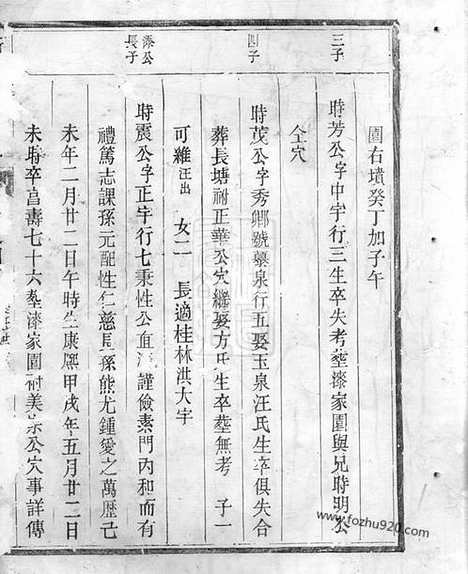 圍右墳癸丁加子午
三子
時芳公字中宇行三生卒失考塟漆家園與兄時明公
仝穴
四子
時茂公字秀卿號蘖泉行五娶玉泉汪氏生卒俱失合
葬長塘祔正華公穴繼娶方氏生卒塟無考 子一
可維汪出 女二 長適桂林洪大宇
添公
長子
時震公字正宇行七秉性公直 謹儉素門內和而有
禮篤志課孫元配性仁慈長孫熊尤鍾愛之萬歷己
未年二月廿二日午時生康熙甲戌年五月廿二日
未時卒昌壽七十六塟漆家園祔美宗公穴事詳傳
www.fozhu920.com